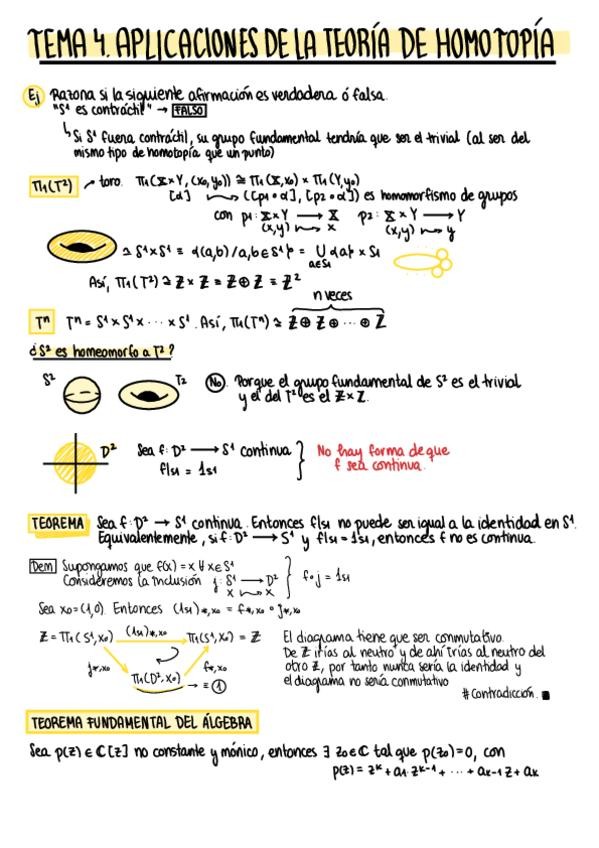 TEMA 4. APLICACIONES DE LA TEORÍA DE HOMOTOPÍA
Ej Razona si la siguiente afirmación es verdadera ó falsa.
"S¹ es contráctil" → FALSO
↳ Si S¹ fuera contráctil, su grupo fundamental tendría que ser el trivial (al ser del
mismo tipo de homotopía que un punto)
Π₁(T²) → toro. Π₁(X×Y, (x₀,y₀)) ≅ Π₁(X,x₀) × Π₁(Y,y₀)
[α] ⟿ ([p₁∘α], [p₂∘α]) es homomorfismo de grupos
con p₁: X×Y → X p₂: X×Y → Y
(x,y) ⟿ x (x,y) ⟿ y
≃ S¹×S¹ = {(a,b)/a,b∈S¹} = ∪ {a} × S₁
a∈S₁
Así, Π₁(T²) ≃ ℤ×ℤ = ℤ⊕ℤ = ℤ²
n veces
Tⁿ Tⁿ = S¹×S¹×···×S¹. Así, Π₁(Tⁿ) ≃ ℤ⊕ℤ⊕···⊕ℤ
¿S² es homeomorfo a T²?
S² T₂ No. Porque el grupo fundamental de S² es el trivial
y el del T² es el ℤ×ℤ.
D² Sea f: D² → S¹ continua } No hay forma de que
f|s₁ = 1s₁ f sea continua.
TEOREMA Sea f: D² → S¹ continua. Entonces f|s₁ no puede ser igual a la identidad en S¹.
Equivalentemente, si f: D² → S¹ y f|s₁ = 1s₁, entonces f no es continua.
Dem Supongamos que f(x) = x ∀ x∈S¹
Consideremos la inclusión j: S¹ → D² } f∘j = 1s₁
x ⟿ x
Sea x₀=(1,0). Entonces (1s₁)*,x₀ = f*,x₀ ∘ j*,x₀
ℤ = Π₁(S¹,x₀) (1s₁)*,x₀ Π₁(S¹,x₀) = ℤ
j*,x₀ f*,x₀
Π₁(D²,x₀) → = ①
El diagrama tiene que ser conmutativo.
De ℤ irías al neutro y de ahí irías al neutro del
otro ℤ, por tanto nunca sería la identidad y
el diagrama no sería conmutativo
#Contradicción. ■
TEOREMA FUNDAMENTAL DEL ÁLGEBRA
Sea p(z) ∈ ℂ[z] no constante y mónico, entonces ∃ z₀∈ℂ tal que p(z₀)=0, con
p(z) = zᵏ + a₁·zᵏ⁻¹ + ··· + aₖ₋₁z + aₖ